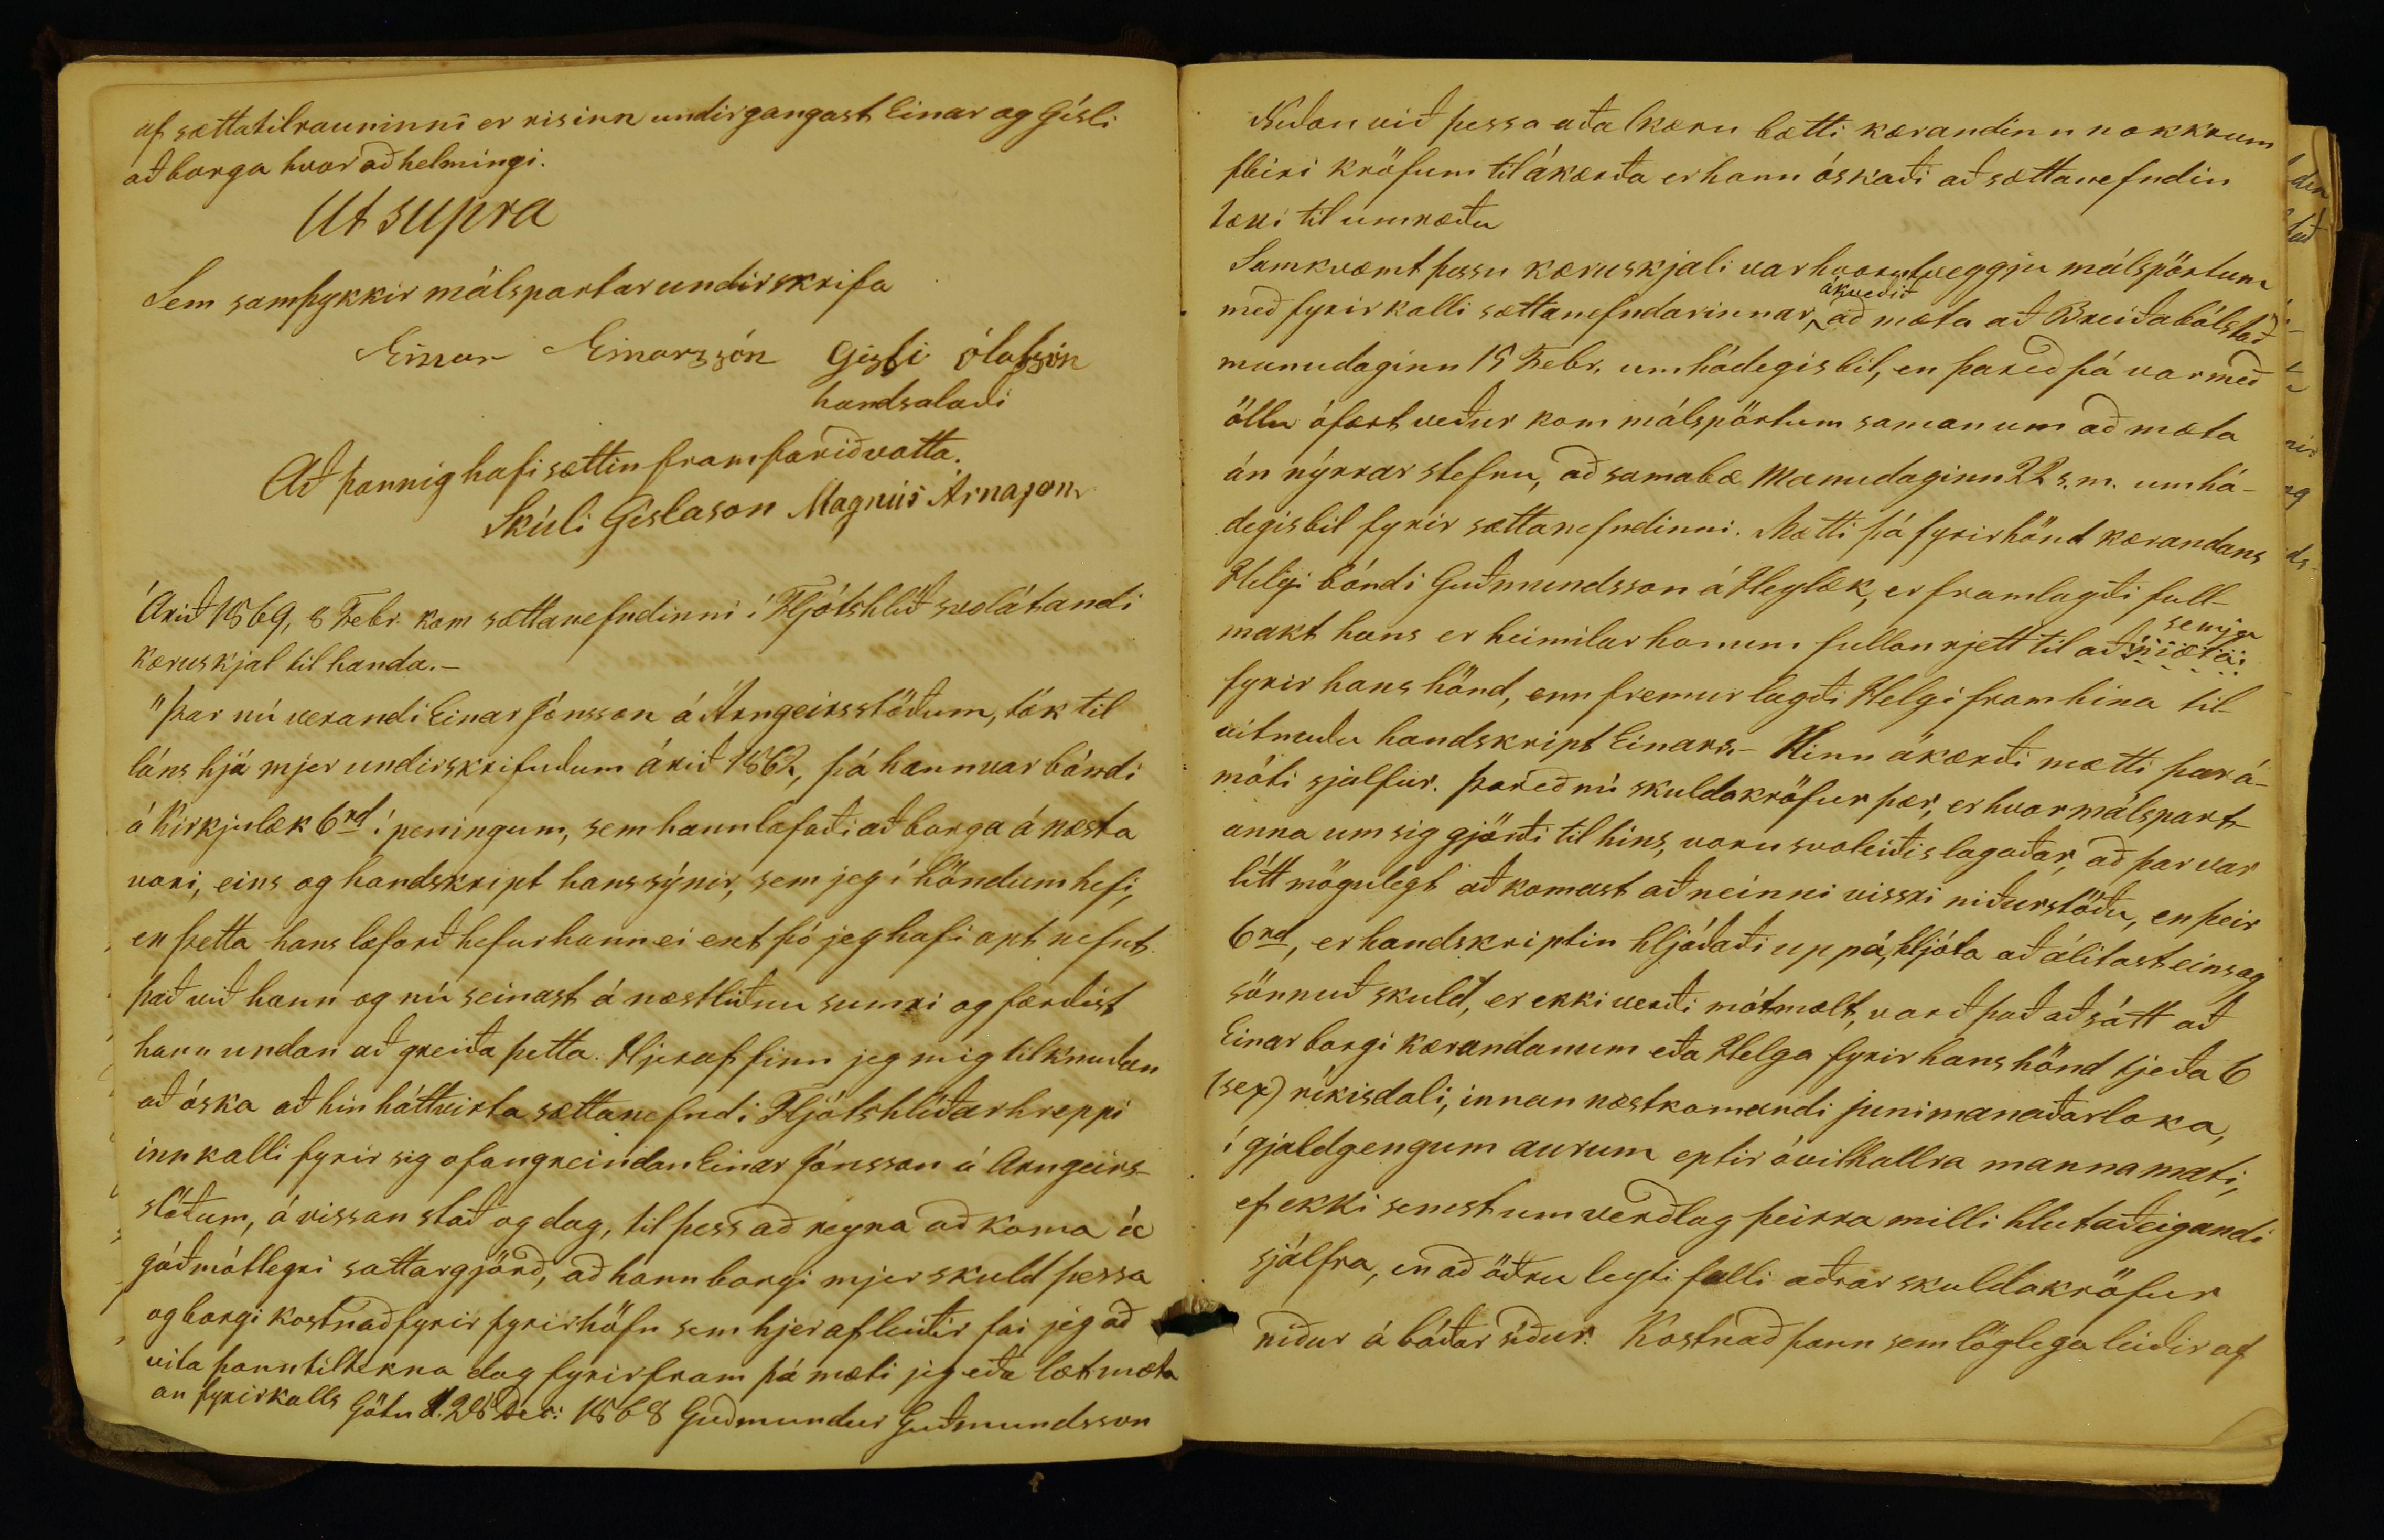 af sættatilrauninni er risinn undirgangast Einar og Gísli
að borga hvor að helmingi.
Ut supra
Sem samþykkir málspartar undirskrifa
Einar Einarsson Gisli Ólafsson
handsalaði
Að þannig hafi sættin framfarið votta.
Skúli Gíslason Magnús Árnason
Árið 1869, 8 Febr. kom sættanefndinni í Fljótshlíð svolátandi
kæruskjal til handa.—
"Þar nú verandi Einar Jónsson á Árngeirsstöðum, tók til
láns hjá mjer undirskrifuðum árið 1862, þá hann var bóndi
á Kirkjulæk 6 rd í peningum, sem hann lofaði að borga á næsta
vori, eins og handskript hans sýnir, sem jeg í höndum hefi,
en þetta hans loforð hefur hann ei ent þó jeg hafi opt nefnt
það við hann og nú seinast á næstliðnu sumri og færðist
hann undan að greiða þetta. Hjeraf finn jeg mig tilknúðan
að óska að hin háttvirta sættanefnd í Fljótshlíðarhreppi
innkalli fyrir sig ofangreindan Einar Jónsson á Arngeirs-
stöðum, á vissan stað og dag, til þess að reyna að koma á
góðmótlegri sáttargjörð, að hann borgi mjer skuld þessa
og borgi kostnað fyrir fyrirhöfn sem hjer af leiðir fai jeg að
vita þann tiltekna dag fyrirfram þá mæti jeg eða læt mæta
án fyrirkalls Götu d. 28 Dec: 1868 Guðmundur Guðmundsson
Neðan við þessa aðalkæru bætti kærandinn nokkrum
fleiri kröfum til ákærða er hann óskaði að sættanefndin
tæki til umræðu
Samkvæmt þessu kæruskjali var hvorutveggju málspörtum
ákveðið
með fyrirkalli sættanefndarinnar, að mæta að Breiðabólstað
mánudaginn 15 Febr. um hádegisbil, en þareð þá var með
öllu ófært veður kom málspörtum saman um að mæta
án nýrrar stefnu, að sama bæ Mánudaginn 22 s.m. um há-
degisbil fyrir sættanefndinni. Mætti þá fyrir hönd kærandans
Helgi bóndi Guðmundsson á Heylæk, er framlagði full-
semja
makt hans er heimilar honum fullan rjett til að mæta
fyrir hans hönd, enn fremur lagði Helgi fram hina til-
vitnuðu handskript Einars.— Hinn ákærði mætti þar á-
móti sjálfur. Þareð nú skuldakröfur þær, er hvor málspart-
anna um sig gjörði til hins, voru svoleiðis lagaðar, að þar var
lítt mögulegt að komast að neinni vissri niðurstöðu, en þeir
6 rd, er handskriptin hljóðaði uppá, hljóta að álítast eins og
sönnuð skuld, er ekki verði mótmælt, varð það að sátt að
Einar borgi kærandanum eða Helga fyrir hans hönd tjeða 6
(sex) ríkisdali, innan næstkomandi júnimánaðarloka,
í gjaldgengum aurum eptir óvilhallra manna mati,
ef ekki semst um verðlag þeirra milli hlutaðeigandi
sjálfra, en að öðru leyti falli aðrar skuldakröfur
niður á báðar síður. Kostnað þann sem löglega leiðir af